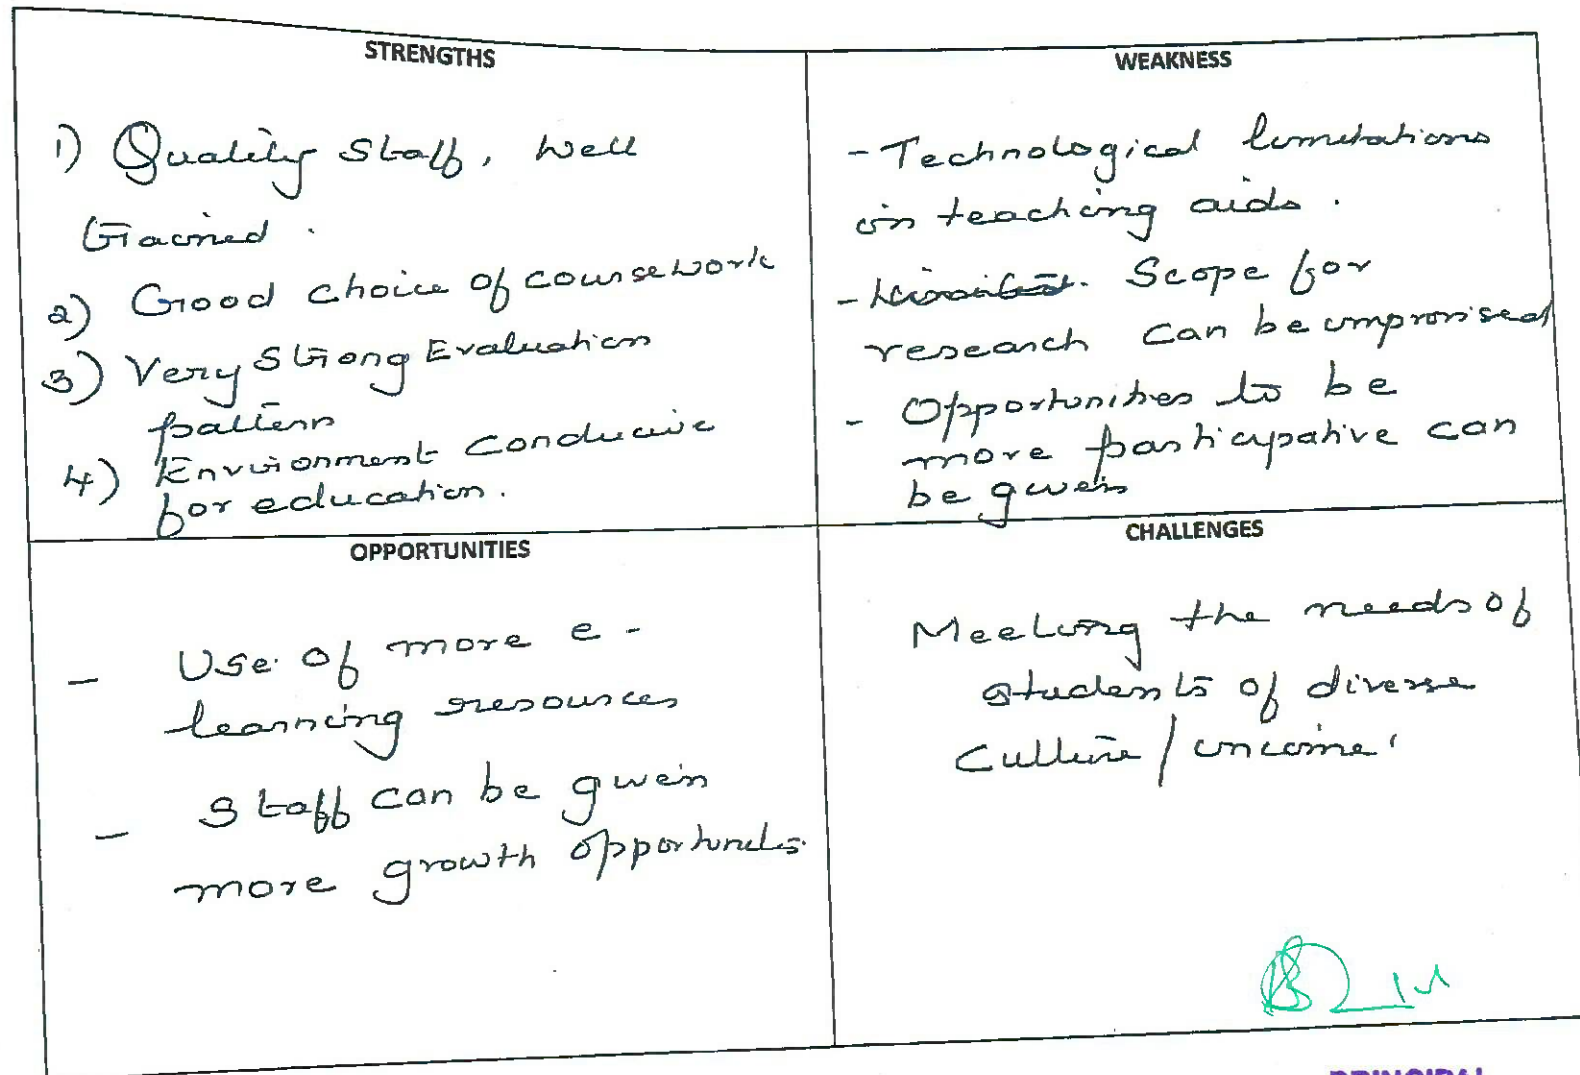 STRENGTHS
1) Quality Staff, Well
trained.
2) Good choice of coursework
3) Very Strong Evaluation
pattern
4) Environment conducive
for education.
WEAKNESS
- Technological limitations
in teaching aids.
- Scope for
research can be improvised
- Opportunities to be
more participative can
be given
OPPORTUNITIES
- Use of more e-
learning resources
- Staff can be given
more growth opportunities.
CHALLENGES
Meeting the needs of
students of diverse
Culture / income.
PRINCIPAL